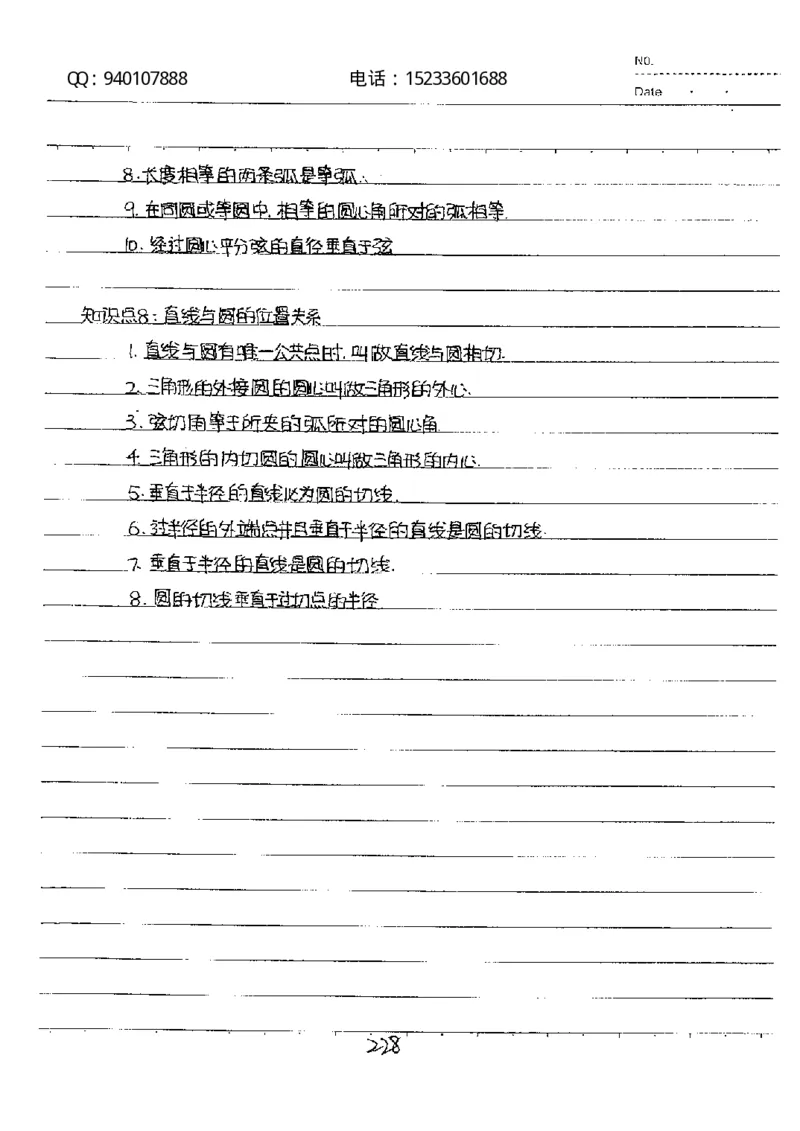 QQ：940107888
电话：15233601688
No.
Date
8.长度相等的两条弧是等弧.
9.在同圆或等圆中,相等的圆心角所对的弧相等.
10.经过圆心平分弦的直径垂直于弦
知识点8:直线与圆的位置关系
1.直线与圆有唯一公共点时,叫做直线与圆相切.
2.三角形的外接圆的圆心叫做三角形的外心.
3.弦切角等于所夹的弧所对的圆心角.
4.三角形的内切圆的圆心叫做三角形的内心.
5.垂直于半径的直线必为圆的切线.
6.过半径的外端点并且垂直于半径的直线是圆的切线.
7.垂直于半径的直线是圆的切线.
8.圆的切线垂直于过切点的半径
228